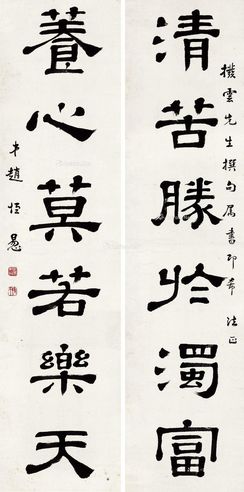 清苦勝於濁富
撥雲先生撰句屬書即希 法正
養心莫若樂天
弟趙恒惕